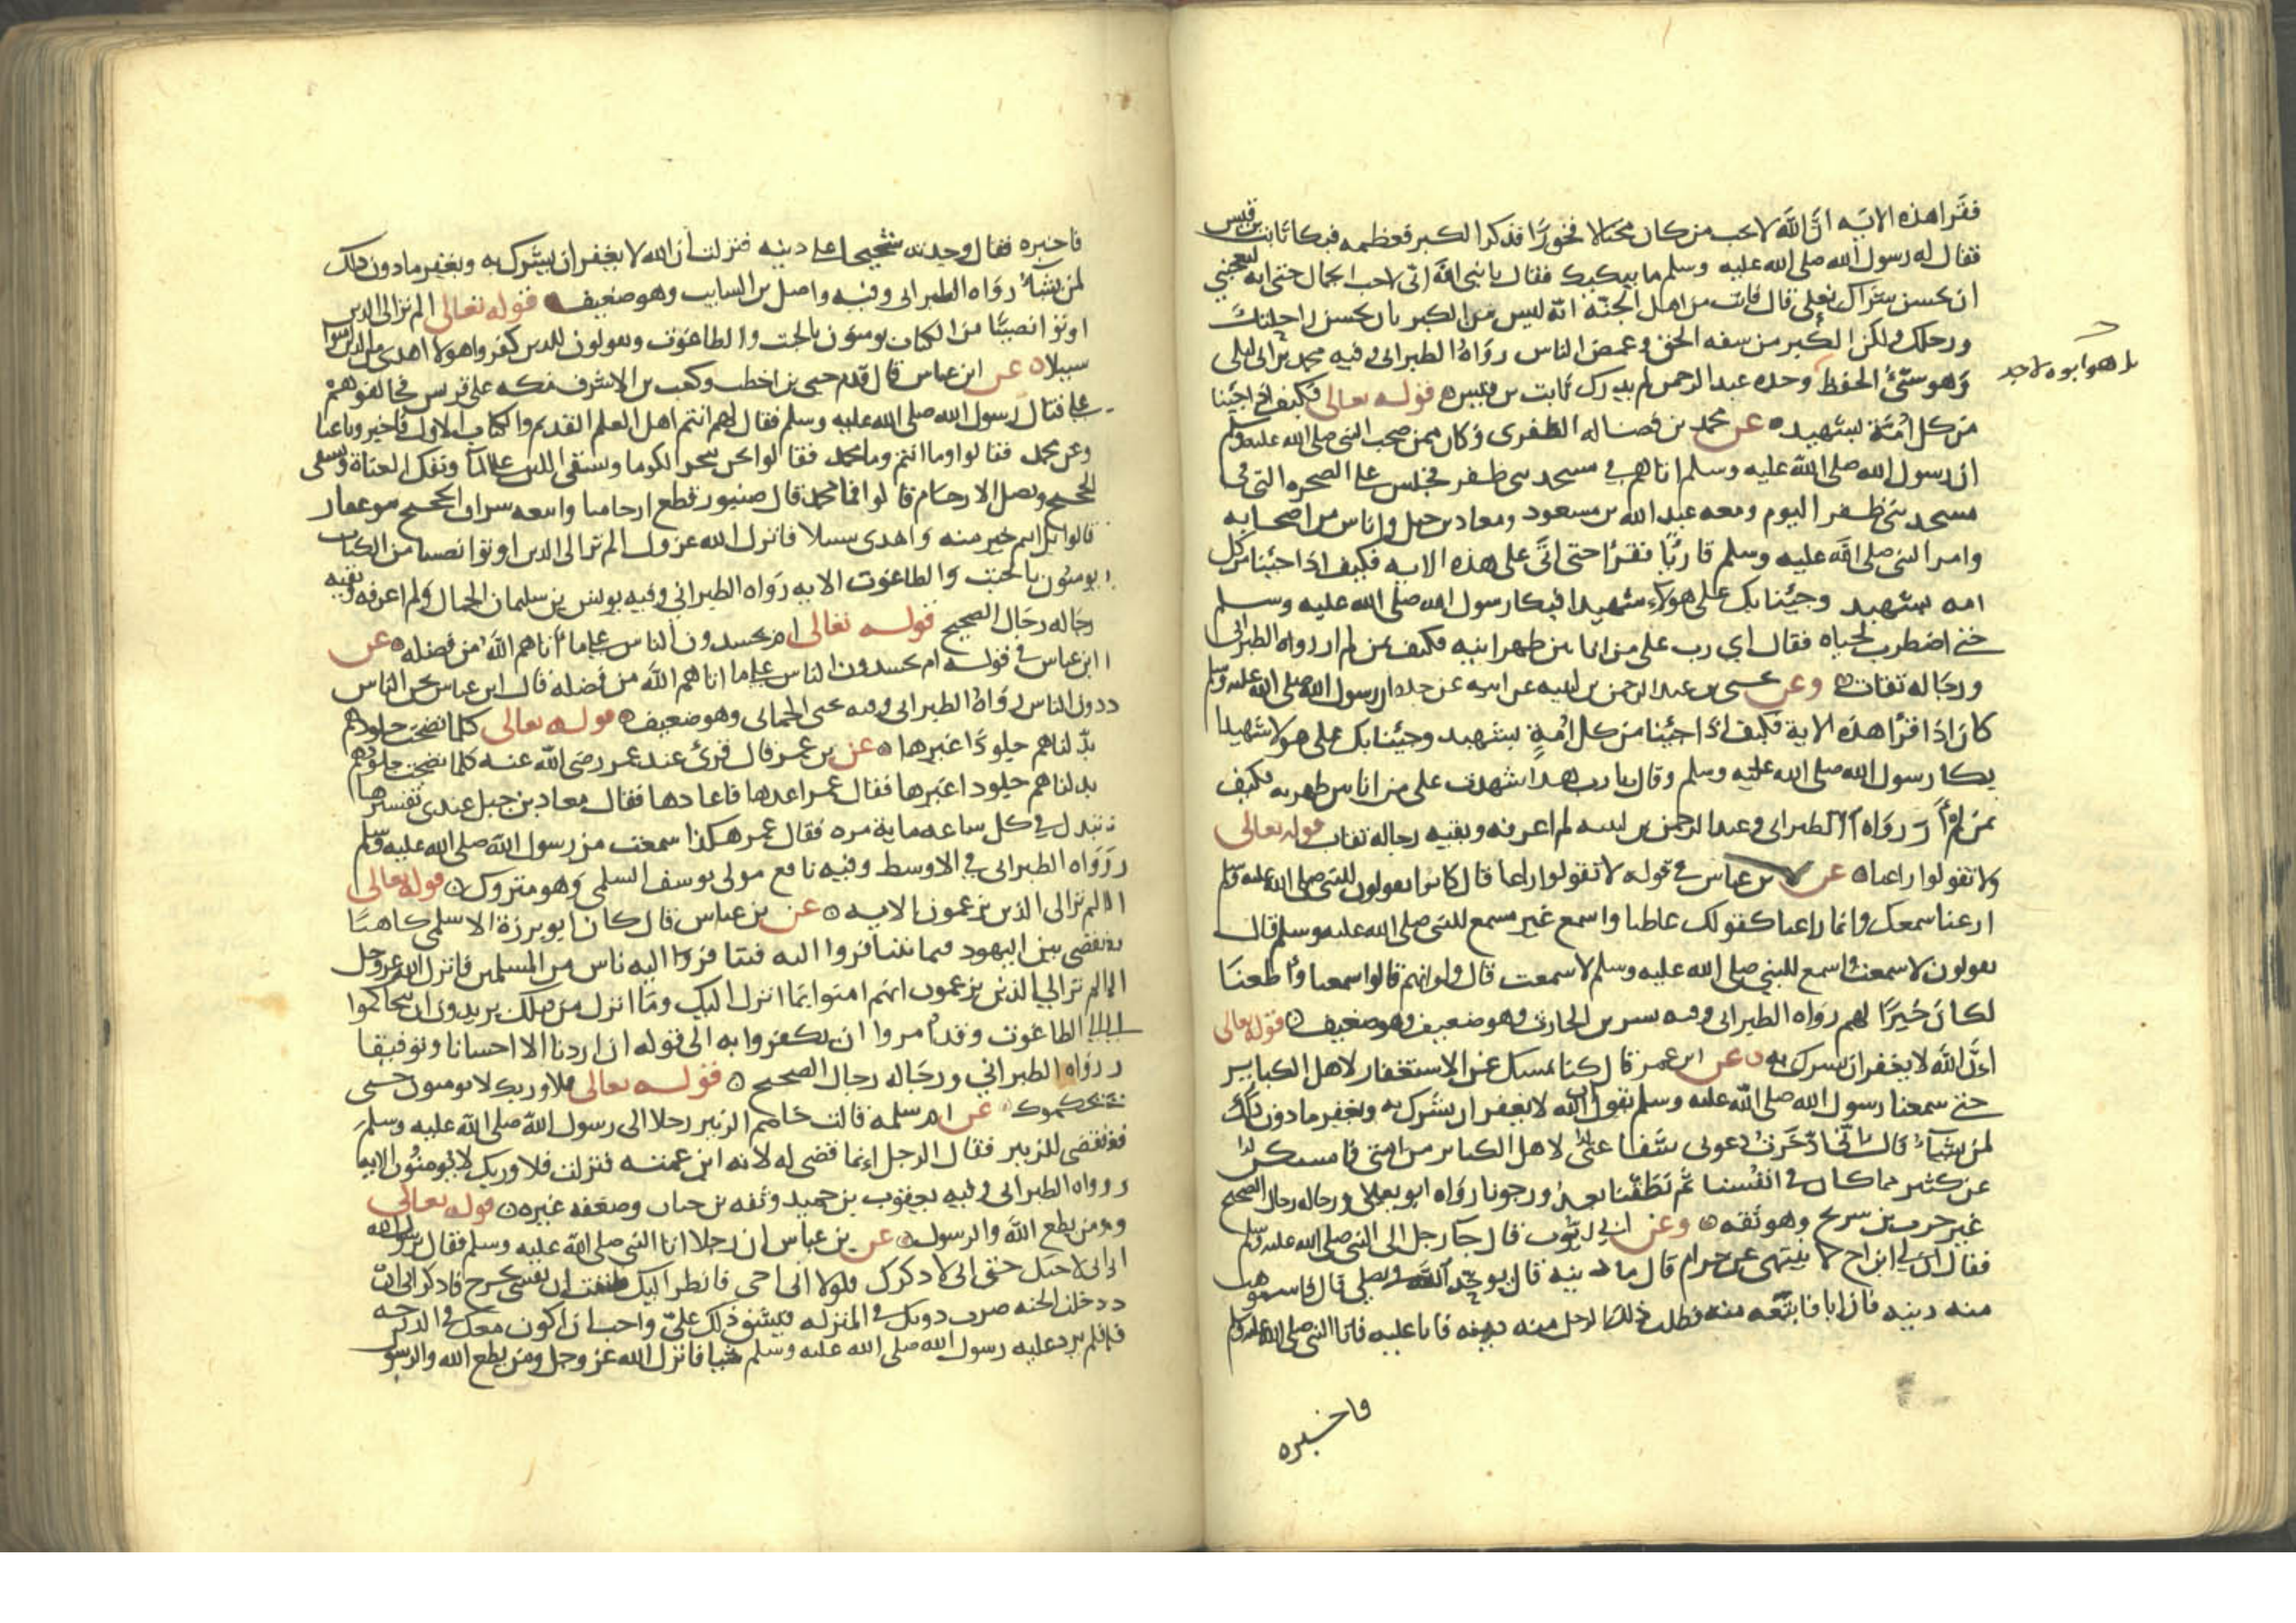 فقرا هذه الاية ان الله لا يحب من كان مختالا فخورا فذكر الكبر فعظمه فبكا ثابت بن قيس
فقال له رسول الله صلى الله عليه وسلم ما يبكيك فقال يا نبي الله اني لاحب الجمال حتى انه ليعجبني
ان يحسن شراك نعلي قال فانت من اهل الجنة انه ليس من الكبر بان تحسن راحلتك
ورحلك ولكن الكبر من سفه الحق وغمص الناس رواه الطبراني وفيه محمد بن ابي ليلى
وهو سيئ الحفظ وحده عبد الرحمن لم يدرك ثابت بن قيس قوله تعالى فكيف اذا جينا
بل هو ابوه لا جد
من كل امة بشهيد عن محمد بن فضاله الظفري وكان ممن صحب النبي صلى الله عليه وسلم
ان رسول الله صلى الله عليه وسلم اتاهم في مسجد بني ظفر فجلس على الصخره التي في
مسجد بني ظفر اليوم ومعه عبد الله بن مسعود ومعاد بن جبل واناس من اصحابه
وامر النبي صلى الله عليه وسلم قاريا فقرا حتى اتى على هذه الايه فكيف اذا جئنا من كل
امه بشهيد وجئنا بك على هولاء شهيدا فبكا رسول الله صلى الله عليه وسلم
حتى اضطرب لحياه فقال اي رب على من انا بين ظهرانيه فكيف بمن لم ار رواه الطبراني
ورجاله ثقات وعن يحيى بن عبد الرحمن بن لبيه عن ابيه عن جده ان رسول الله صلى الله عليه وسلم
كان اذا قرا هذه الاية فكيف اذا جئنا من كل امة بشهيد وجئنا بك على هولا شهيدا
بكا رسول الله صلى الله عليه وسلم وقال يا رب هذا شهدت على من انا بين ظهريه فكيف
بمن لم ار رواه الطبراني وعبد الرحمن بن لبيه لم اعرفه وبقيه رجاله ثقات قوله تعالى
ولا تقولوا راعنا عن بن عباس في قوله لا تقولوا راعنا قال كانوا يقولون للنبي صلى الله عليه وسلم
ارعنا سمعك وانما راعنا كقولك عاطنا واسمع غير مسمع للنبي صلى الله عليه وسلم قال
يقولون لا سمعت واسمع للنبي صلى الله عليه وسلم لا سمعت قال ولو انهم قالوا سمعنا واطعنا
لكان خيرا لهم رواه الطبراني وفيه بشر بن الحارث وهو ضعيف وهو ضعيف قوله تعالى
ان الله لا يغفر ان يشرك به عن ابن عمر قال كنا نمسك عن الاستغفار لاهل الكباير
حتى سمعنا رسول الله صلى الله عليه وسلم يقول ان الله لا يغفر ان يشرك به ويغفر ما دون ذلك
لمن يشاء قال اني ادخرت دعوتي شفاعتي لاهل الكباير من امتي فامسكنا
عن كثير مما كان في انفسنا ثم نطقنا بعد ورجونا رواه ابو يعلى ورجاله رجال الصحيح
غير حرب بن سريج وهو ثقه وعن ابي ايوب قال جا رجل الى النبي صلى الله عليه وسلم
فقال ان لي ابن اخ لا ينتهي عن حرام قال ما دينه قال يوحد الله ويصلي قال فاستوهب
منه دينه فان ابا فابتعه منه فطلب ذلك الرجل منه دينه فابا عليه فاتا النبي صلى الله عليه وسلم
فاخبره
فاخبره فقال وجدته شحيحا على دينه فنزلت ان الله لا يغفر ان يشرك به ويغفر ما دون ذلك
لمن يشاء رواه الطبراني وفيه واصل بن السايب وهو ضعيف قوله تعالى الم تر الى الدين
اوتوا نصيبا من الكتاب يومنون بالجبت والطاغوت ويقولون للدين كفروا هولا اهدى من الدين امنوا
سبيلا عن ابن عباس قال قدم حيي بن اخطب وكعب بن الاشرف مكه على قريش فحالفوهم
على قتال رسول الله صلى الله عليه وسلم فقال لهم انتم اهل العلم القديم والكتاب الاول فاخبرونا عنا
وعن محمد فقالوا وما انتم وما محمد فقالوا نحن ننحر الكوما ونسقي اللبن على الما ونفك العناة ونسقي
الحجيج ونصل الارحام قالوا فما محمد قال صنبور قطع ارحامنا واتبعه سراق الحجيج بنو غفار
قالوا بل انتم خير منه واهدى سبيلا فانزل الله عز وجل الم تر الى الدين اوتوا نصيبا من الكتاب
يومنون بالجبت والطاغوت الايه رواه الطبراني وفيه يونس بن سليمان الجمال ولم اعرفه وبقيه
رجاله رجال الصحيح قوله تعالى ام يحسدون الناس على ما اتاهم الله من فضله عن
ابن عباس في قوله ام يحسدون الناس على ما اتاهم الله من فضله قال ابن عباس نحن الناس
دون الناس رواه الطبراني وفيه يحيى الحماني وهو ضعيف قوله تعالى كلما نضجت جلودهم
بدلناهم جلودا غيرها عن بن عمر قال قرئ عند عمر رضي الله عنه كلما نضجت جلودهم
بدلناهم جلودا غيرها فقال عمر اعدها فاعادها فقال معاد بن جبل عندي تفسيرها
تبدل في كل ساعه ماية مره فقال عمر هكذا سمعت من رسول الله صلى الله عليه وسلم
رواه الطبراني في الاوسط وفيه نافع مولى يوسف السلمي وهو متروك قوله تعالى
الم تر الى الذين يزعمون الايه عن بن عباس قال كان ابو برزة الاسلمي كاهنا
يقضي بين اليهود فيما يتنافروا اليه فتنافروا اليه ناس من المسلمين فانزل الله عز وجل
الم تر الي الذين يزعمون انهم امنوا بما انزل اليك وما انزل من قبلك يريدون ان يتحاكموا
الى الطاغوت وقد امروا ان يكفروا به الى قوله ان اردنا الا احسانا وتوفيقا
رواه الطبراني ورجاله رجال الصحيح قوله تعالى فلا وربك لا يومنون حتى
يحكموك عن ام سلمه قالت خاصم الزبير رجلا الى رسول الله صلى الله عليه وسلم
فقضى للزبير فقال الرجل انما قضى له لانه ابن عمته فنزلت فلا وربك لا يومنون الايه
رواه الطبراني وفيه يعقوب بن حميد وثقه بن حبان وضعفه غيره قوله تعالى
ومن يطع الله والرسول عن بن عباس ان رجلا اتا النبي صلى الله عليه وسلم فقال يا رسول الله
اني لاحبك حتى اني لادكرك فلولا اني اجي فانظر اليك ظننت ان نفسي تخرج فادكر اني ان
دخلت الجنه صرت دونك في المنزله فيشق ذلك علي واحب ان اكون معك في الدرجه
فلم يرد عليه رسول الله صلى الله عليه وسلم شيا فانزل الله عز وجل ومن يطع الله والرسول